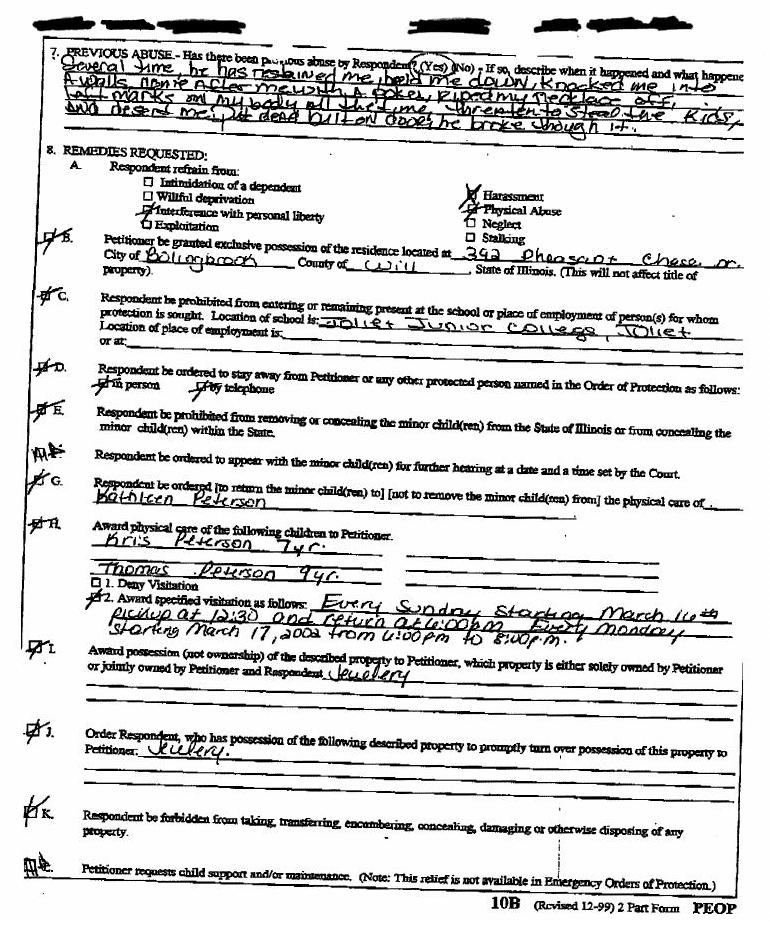 7. PREVIOUS ABUSE - Has there been previous abuse by Respondent? (Yes) (No) - If so, describe when it happened and what happene
Several time, he has restained me, held me down, knocked me into
A walls come After me with A Poker, Riped my Necklace off,
Left marks on my body all the time. Threaten to Steal the Kids,
And desert me. put dead bult on door, he broke though it.
8. REMEDIES REQUESTED:
A. Respondent refrain from:
Intimidation of a dependent
Willful deprivation
Interference with personal liberty
Exploitation
Harassment
Physical Abuse
Neglect
Stalking
B. Petitioner be granted exclusive possession of the residence located at 392 Pheasant Chase Dr.
City of Bolingbrook County of Will, State of Illinois. (This will not affect title of
property).
C. Respondent be prohibited from entering or remaining present at the school or place of employment of person(s) for whom
protection is sought. Location of school is: Joliet Junior College, Joliet
Location of place of employment is:
or at:
D. Respondent be ordered to stay away from Petitioner or any other protected person named in the Order of Protection as follows:
in person by telephone
E. Respondent be prohibited from removing or concealing the minor child(ren) from the State of Illinois or from concealing the
minor child(ren) within the State.
Respondent be ordered to appear with the minor child(ren) for further hearing at a date and a time set by the Court.
G. Respondent be ordered [to return the minor child(ren) to] [not to remove the minor child(ren) from] the physical care of
Kathleen Peterson
H. Award physical care of the following children to Petitioner.
Kris Peterson 7yr.
Thomas Peterson 9yr.
1. Deny Visitation
2. Award specified visitation as follows: Every Sunday Starting March 16th
pickup at 12:30 and return at 6:00pm Every monday
starting March 17, 2002 from 4:00pm to 8:00p.m.
I. Award possession (not ownership) of the described property to Petitioner, which property is either solely owned by Petitioner
or jointly owned by Petitioner and Respondent Jewelery
J. Order Respondent, who has possession of the following described property to promptly turn over possession of this property to
Petitioner: Jewelery.
K. Respondent be forbidden from taking, transferring, encumbering, concealing, damaging or otherwise disposing of any
property.
Petitioner requests child support and/or maintenance. (Note: This relief is not available in Emergency Orders of Protection.)
10B (Revised 12-99) 2 Part Form PEOP